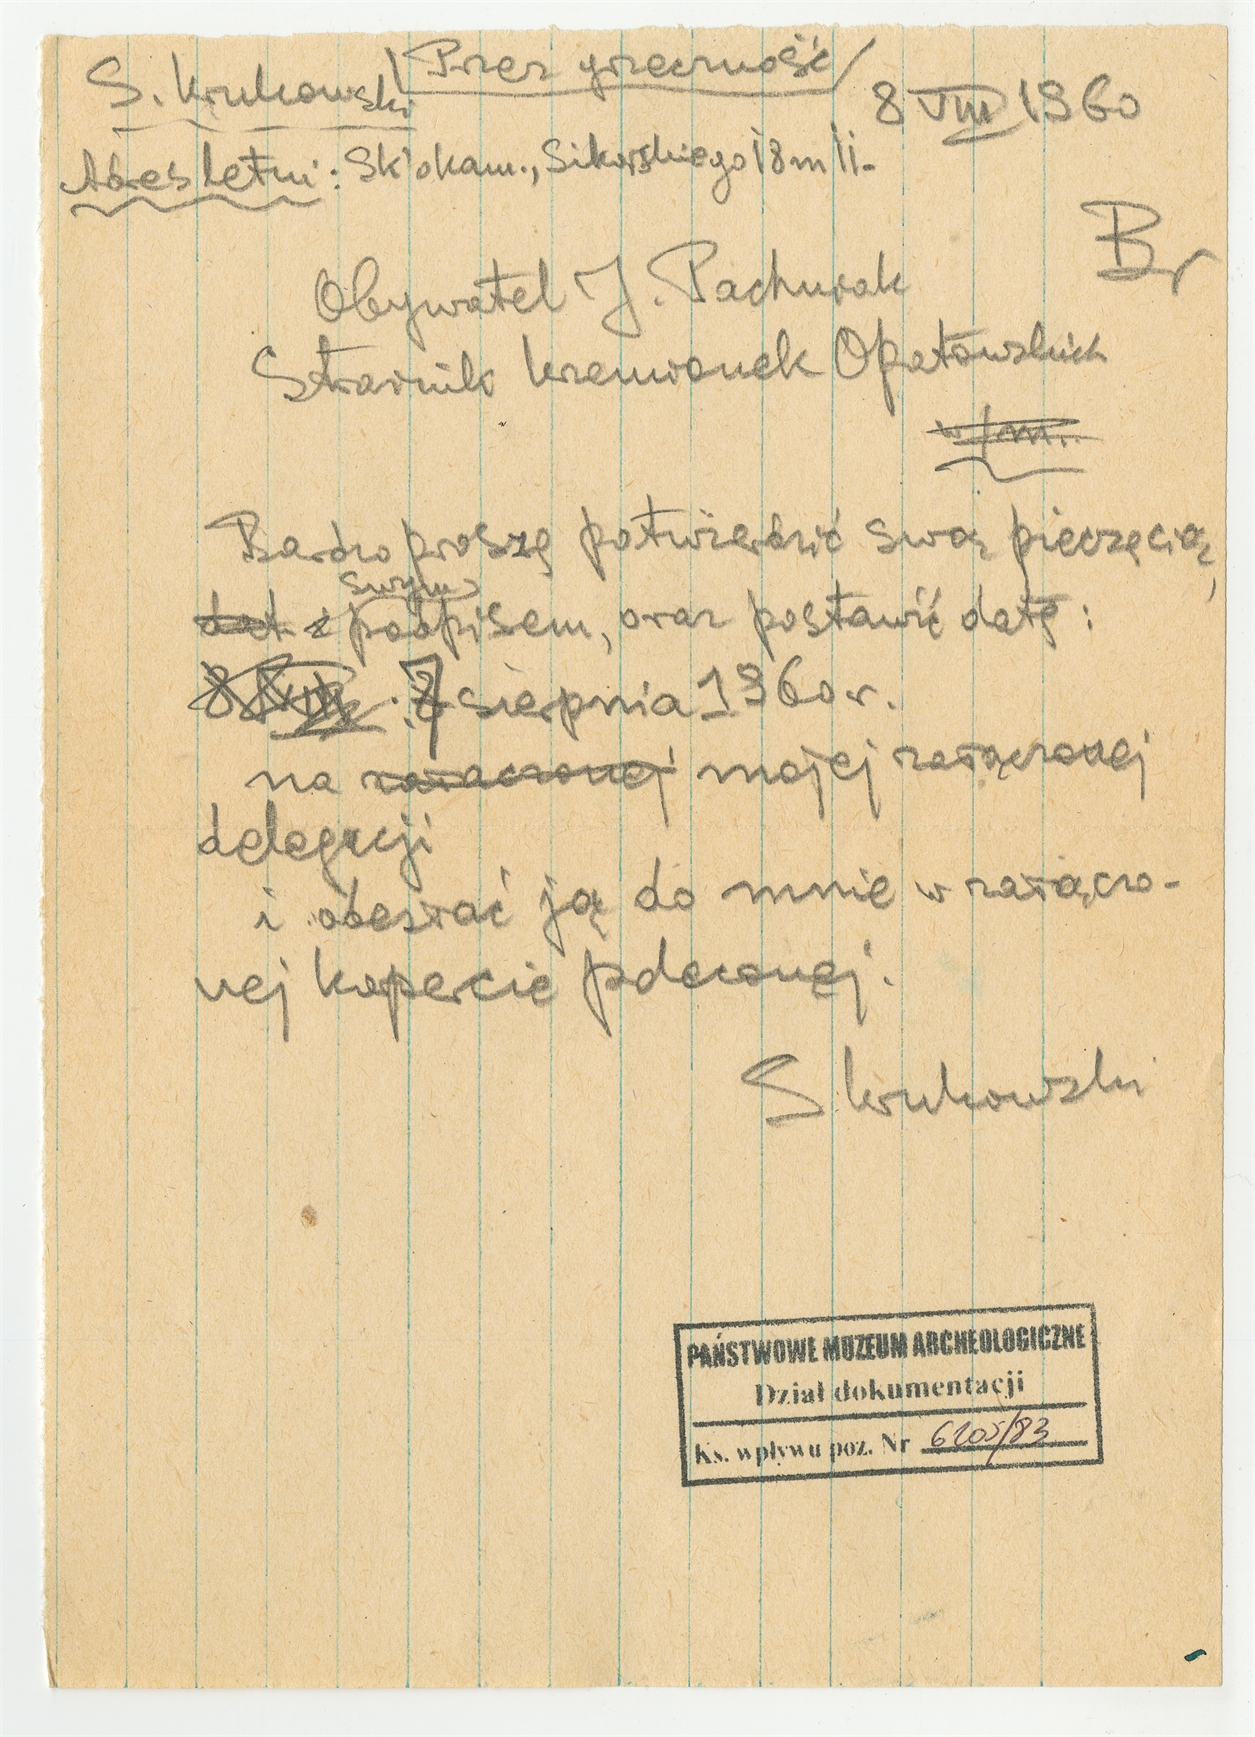 S. Krukowski /Przez grzeczność/ 8 VIII 1960
Adres letni: Sk'okam., Sikorskiego 18 m 11.
Br
Obywatel J. Pachurak
Strażnik krzemionek Opatowskich
w/m.
Bardzo proszę potwierdzić swoją pieczęcią,
swym
podpisem, oraz postawić datę:
8 VIII 7 sierpnia 1960 r.
na załączonej mojej załączonej
delegacji
i odesłać ją do mnie w załączo-
nej kopercie
S Krukowski
PAŃSTWOWE MUZEUM ARCHEOLOGICZNE
Dział dokumentacji
Ks. wpływu poz. Nr 6205/83